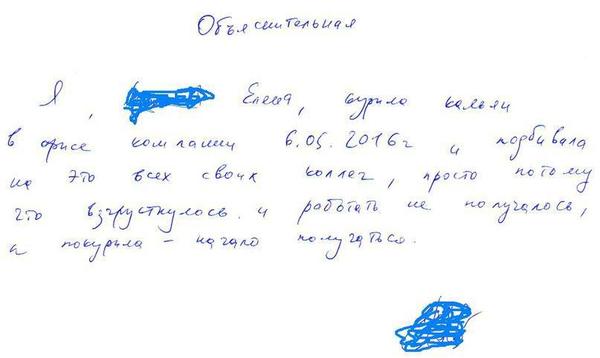 Объяснительная
Я, Елена, курила кальян
в офисе компании 6.05.2016г и подбивала
на это всех своих коллег, просто потому
что взгрустнулось и работать не получалось,
а покурила - начало получаться.